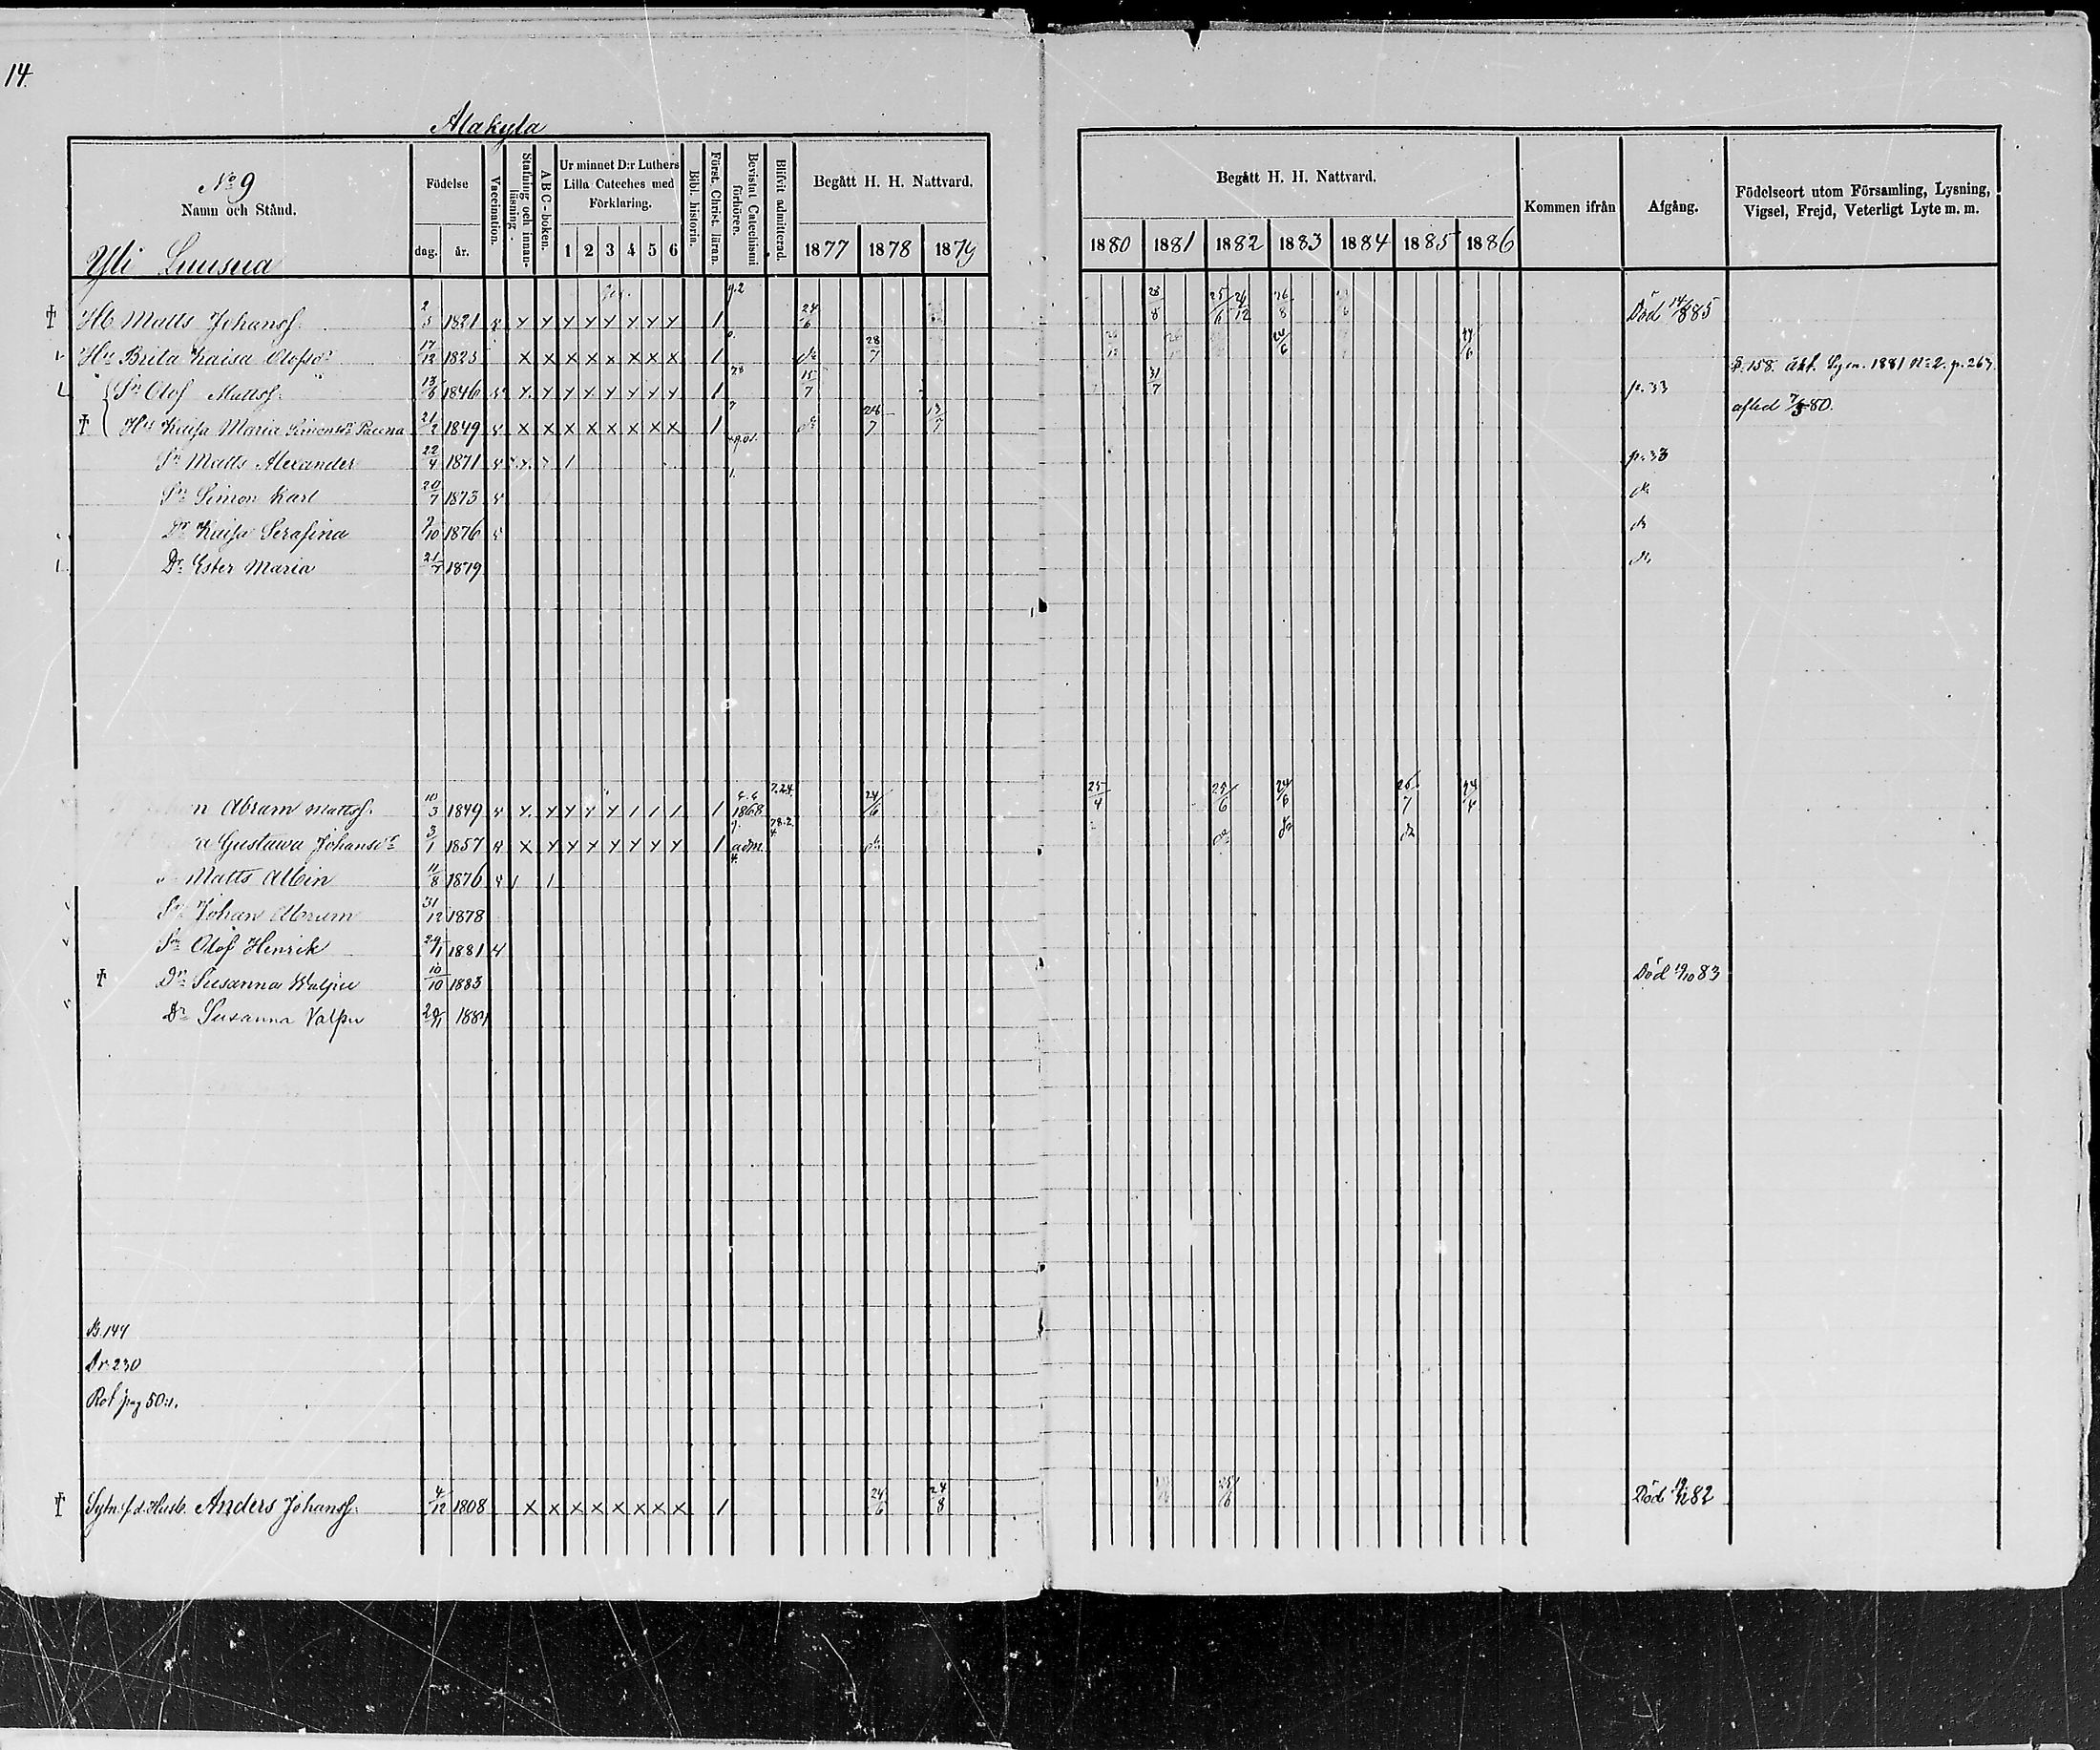 14.
Alakyla
No 9
Namn och Stånd.
Yli Luusua
Födelse
dag. år.
Vaccination.
Stafning och innanläsning.
A B C-boken.
Ur minnet D:r Luthers Lilla Cateches med Förklaring.
1 2 3 4 5 6
Bibl. historia.
Först. Christ. läran.
Bevistat Catechismi förhören.
Blifvit admitterad.
Begått H. H. Nattvard.
1877 1878 1879
Begått H. H. Nattvard.
1880 1881 1882 1883 1884 1885 1886
Kommen ifrån
Afgång.
Födelseort utom Församling, Lysning, Vigsel, Frejd, Veterligt Lyte m. m.
Matts Johanss. 1821 x x x x x x x x 1 24/6 28/8 25/6 26/12 26/8 Död 14/8 85
Hu Brita Kaisa Olofsdr 17/12 1823 x x x x x x x x 1 do 28/7 24/6 27/6
p. 158. 1881 No 2. p. 263.
Sn Olof Mattss. 13/6 1846 x x x x x x x x 1 15/7 31/7 p. 33
Hu Kaisa Maria 21/2 1849 x x x x x x x x 1 do 28/7 13/7
afled 7/3 80.
Sn Matts Alexander 22/4 1871 1 p. 33
Sn Simon Karl 20/7 1873 do
Dr Kaisa Serafina 9/10 1876 do
Dr Ester Maria 21/7 1879 do
n Abram Mattss. 10/3 1849 x x x x x 1 1 1 1 1868 24/6 25/4 25/6 24/6 26/7
Gustawa Johansdr 3/1 1857 x x x x x x x x 1 adm. do do do do
Matts Albin 11/8 1876 1 1
Sn Johan Abram 31/12 1878
Sn Olof Henrik 29/1 1881
Dr Susanna Walpu 10/10 1883 Död 19/10 83
Dr Susanna Valpu 29/11 1884
B. 144
Dr: 230
Rot pag 50:1.
Sytn. f. d. Husb. Anders Johanss. 4/12 1808 x x x x x x x x 1 24/6 24/8 25/6 Död 82